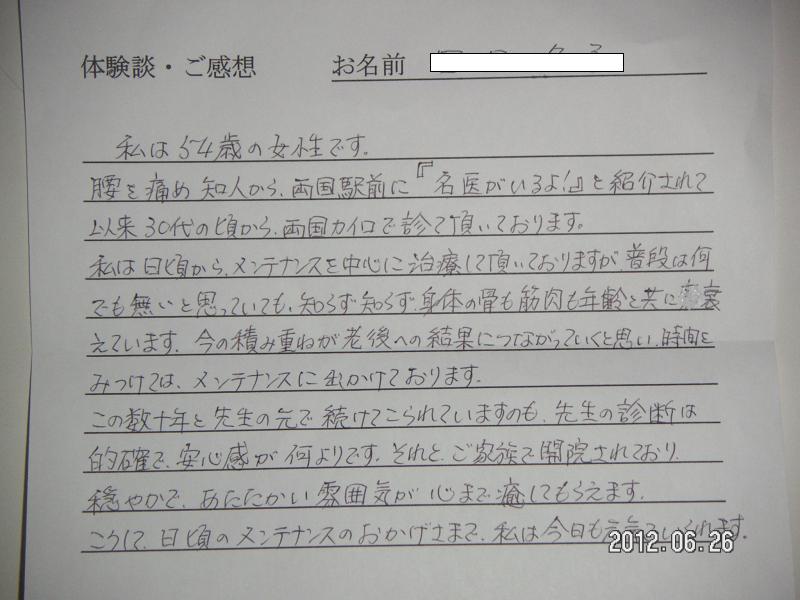 体験談・ご感想 お名前
私は54歳の女性です。
腰を痛め知人から、両国駅前に『名医がいるよ!』と紹介されて
以来30代の頃から、両国カイロで診て頂いております。
私は日頃から、メンテナンスを中心に治療して頂いておりますが、普段は何
でも無いと思っていても、知らず知らず、身体の骨も筋肉も年齢と共に衰
えています。今の積み重ねが老後への結果につながっていくと思い、時間を
みつけては、メンテナンスに出かけております。
この数十年と先生の元で続けてこられていますのも、先生の診断は
的確で、安心感が何よりです。それと、ご家族で開院されており、
穏やかで、あたたかい雰囲気が心まで癒してもらえます。
こうして、日頃のメンテナンスのおかげさまで、私は今日も元気でいられます。
2012.06.26